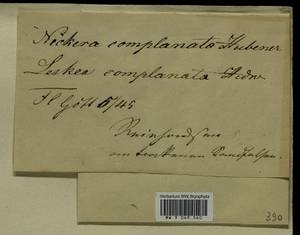 Neckera complanata Hübener
Leskea complanata Hedw.
Fl Gött 5/45
Reinhardsen
am trockenen
Herbarium MW, Bryophyta
390